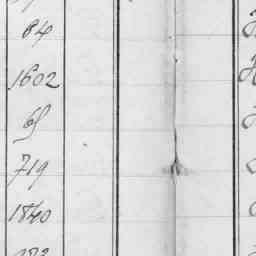 84
1602
65
719
1840